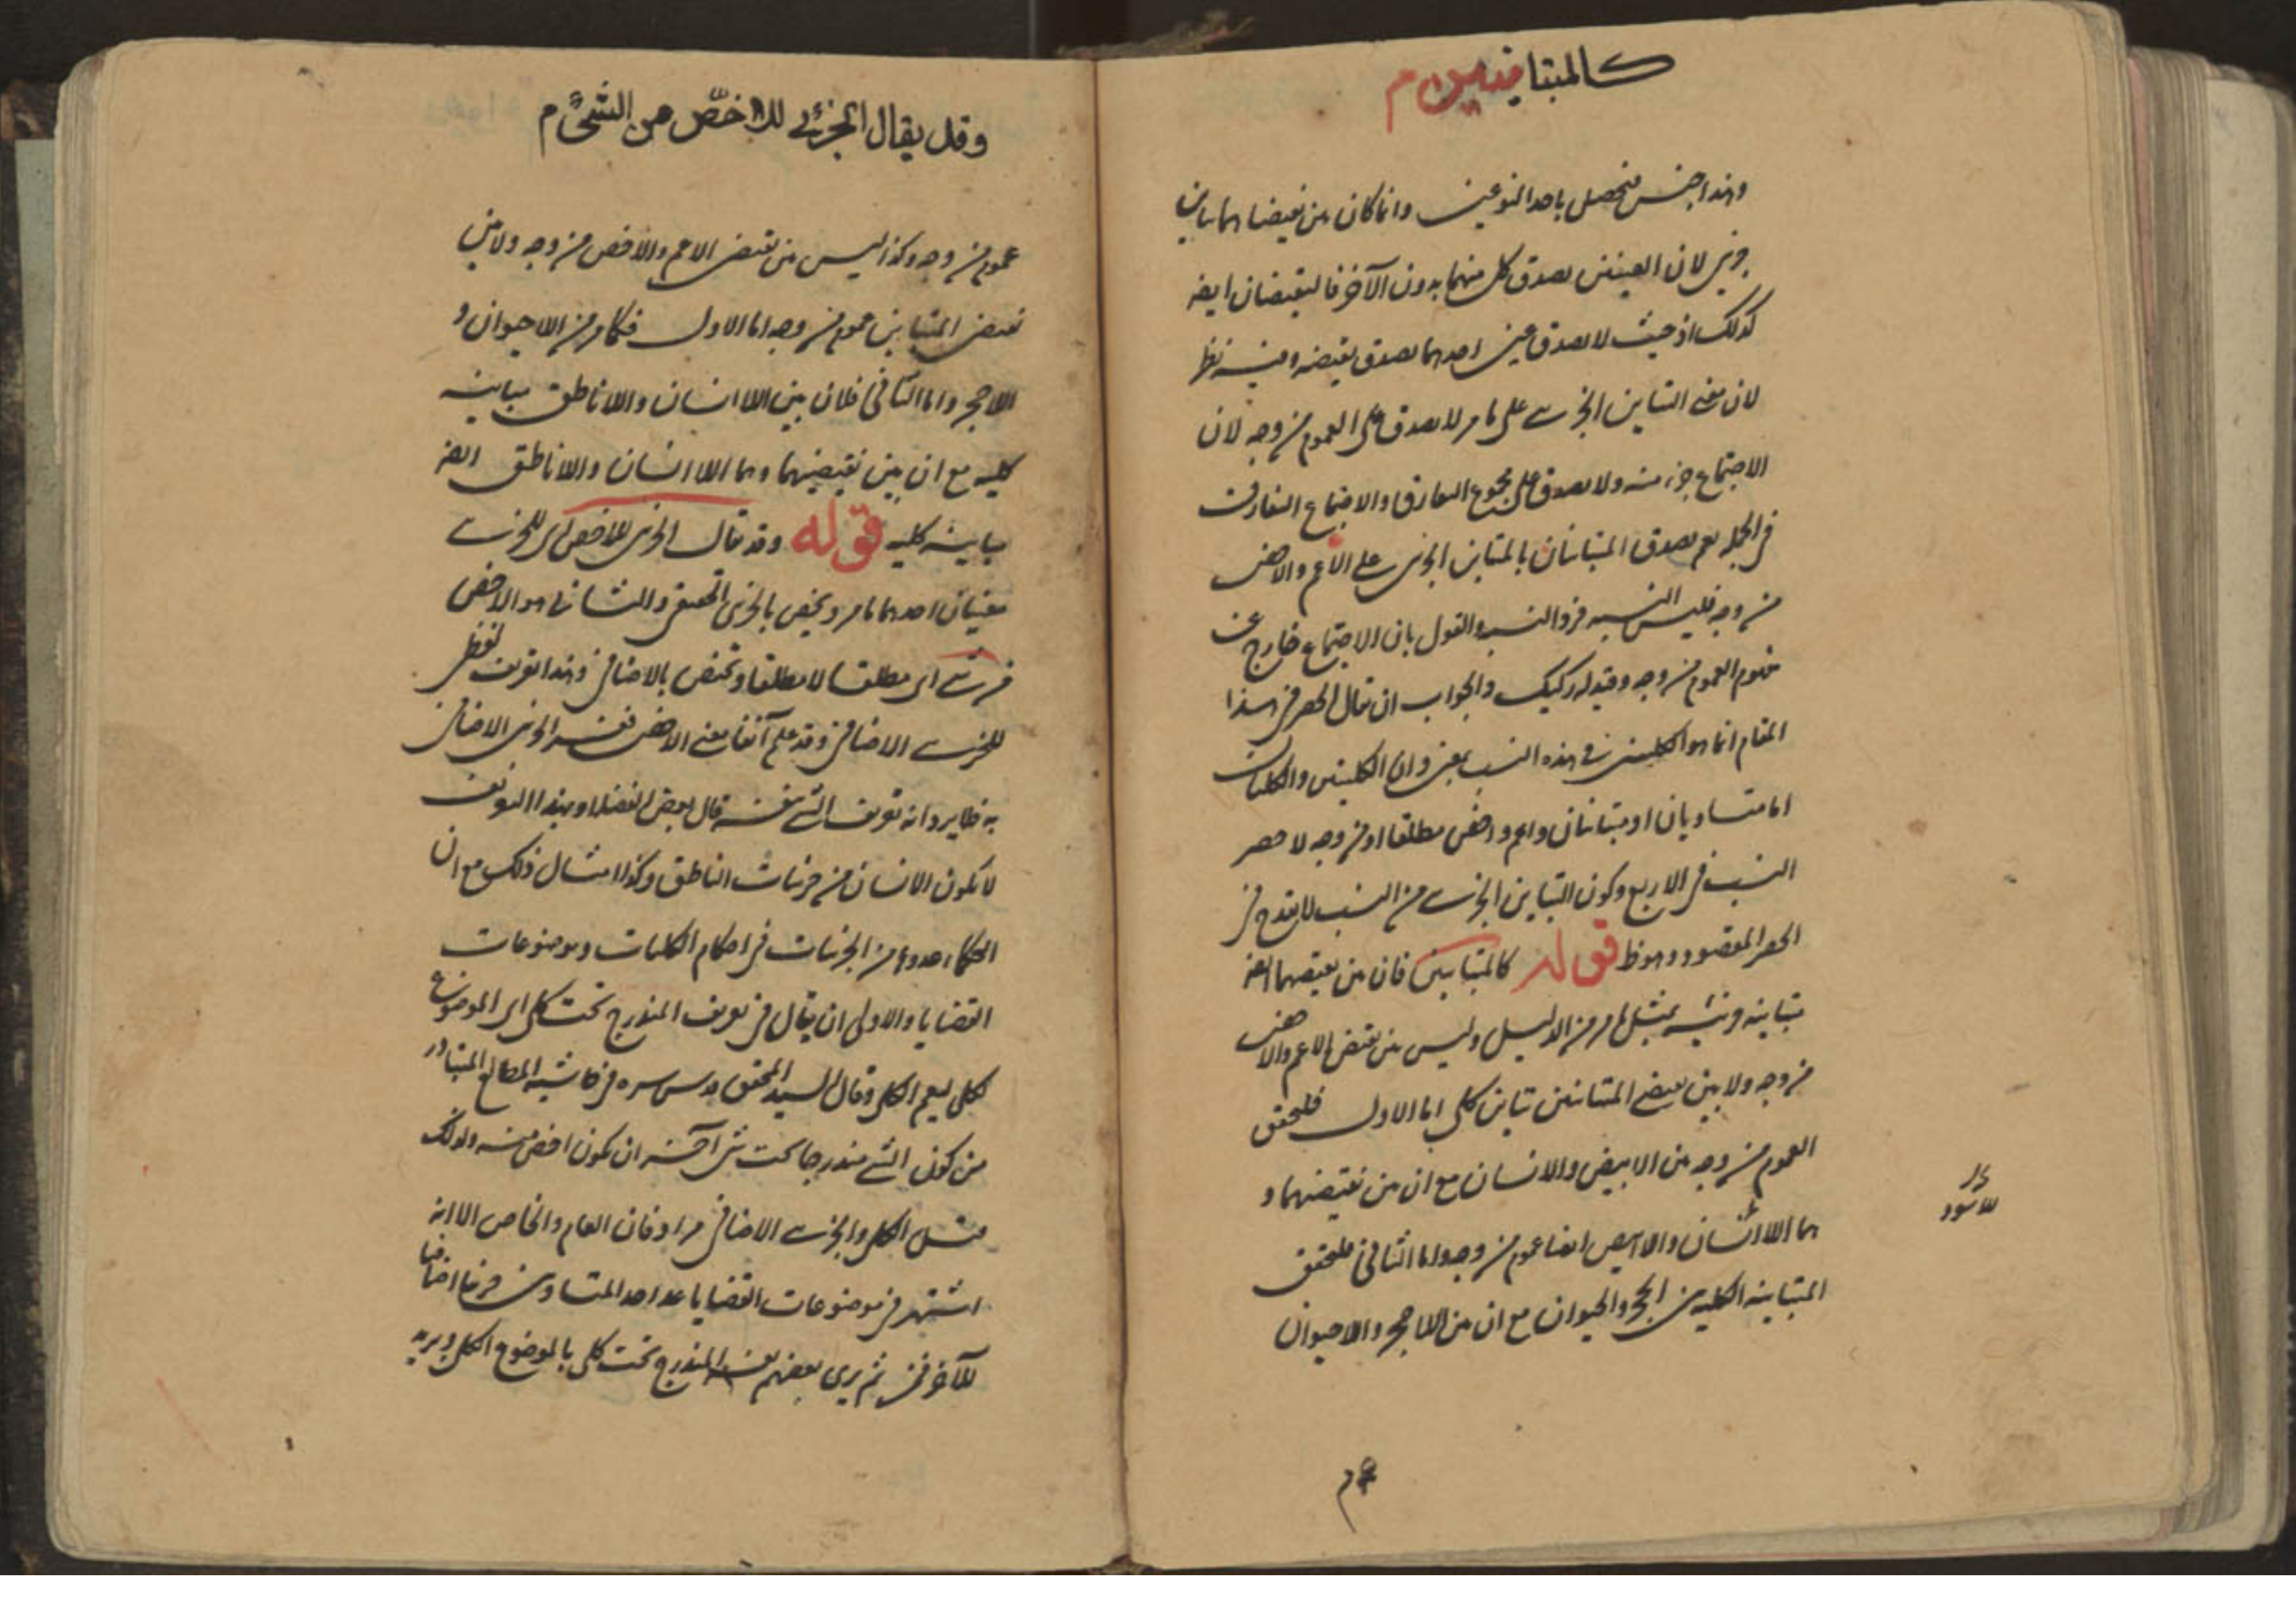 كالمتباينين م
وهذا جنس متحصل باحد النوعين وانما كان بين نقيضاهما تباين
جزئي لان العينين يصدق كل منهما بدون الآخر فالنقيضان ايضه
كذلك اذ حيث لا يصدق عين احدهما يصدق نقيضه وفيه نظر
لان معنى التباين الجزئى على ما مر لا يصدق على العموم من وجه لان
الاجتماع جزء منه ولا يصدق على مجموع التفارق والاجتماع التفارق
فى الجملة نعم يصدق المتباينان بالتباين الجزئى على الاعم والاخص
من وجه فليس النسبه والقول بان الاجتماع خارج عن
مفهوم العموم من وجه وقيد له ركيك والجواب ان يقال الحصر فى هذا
المقام انما هو الكليين فى هذه النسب بمعنى وان الكليين والكليات
اما متساويان او متباينان واعم واخص مطلقا او من وجه لا حصر
النسب فى الاربع وكون التباين الجزئى من النسب لا يقدح فى
الحصر المقصود وهو ظ قوله كالمتباينين فان بين نقيضهما ايضه
مباينة جزئيه بمثل ما مر من الدليل وليس بين نقيض الاعم والاخص
من وجه ولا بين نقيضى المتباينين تباين كلى اما الاول فلتحقق
العموم من وجه بين الابيض والانسان مع ان بين نقيضيهما و
هما اللاانسان واللاابيض ايضا عموم من وجه واما الثانى فلتحقق
المتباينه الكليه بين الحجر والحيوان مع ان بين اللاحجر واللاحيوان
وقد يقال الجزئى للاخصّ من الشئ م
عموم من وجه وكذا ليس بين نقيض الاعم والاخص من وجه ولا بين
نقيض المتباينين عموم من وجه اما الاول فكما مر من اللاحيوان و
اللاحجر واما الثانى فلان بين اللاانسان واللاناطق مباينه
كليه مع ان بين نقيضيهما وهما اللاانسان واللاناطق ايضه
مباينه كليه قوله وقد يقال الجزئى للاخص اى للجزئى
معنيان احدهما ما مر ويختص بالجزئى الحقيقى والثانى هو الاخص
من شئ اى مطلقا لا مطلقا ويختص بالاضافى وهذا تعريف لفظى
للجزئى الاضافى وقد علم آنفا معنى الاخص ففسر الجزئى الاضافى
به فلا يرد انه تعريف الشئ بنفسه قال بعض الفضلاء وبهذا التعريف
لا يكون الانسان من جزئيات الناطق وكذا امثال ذلك مع ان
الحكماء عدوه من الجزئيات فى احكام الكليات وموضوعات
القضايا والاولى ان يقال فى تعريفه المندرج تحت كلى اى الموضوع
لكلى ليعم الكل وقال السيد المحقق قدس سره فى حاشيه المطالع المتبادر
من كون الشئ مندرجا تحت شئ آخر ان يكون اخص منه ولذلك
قيل الكلى والجزئى الاضافى مرادفان العام والخاص الا انه
اشتهر فى موضوعات القضايا عد احد المتساويين جزئيا اضافيا
للآخر فمن ثم يرى بعضهم يفسر المندرج تحت كلى بالموضوع الكلى ويريد